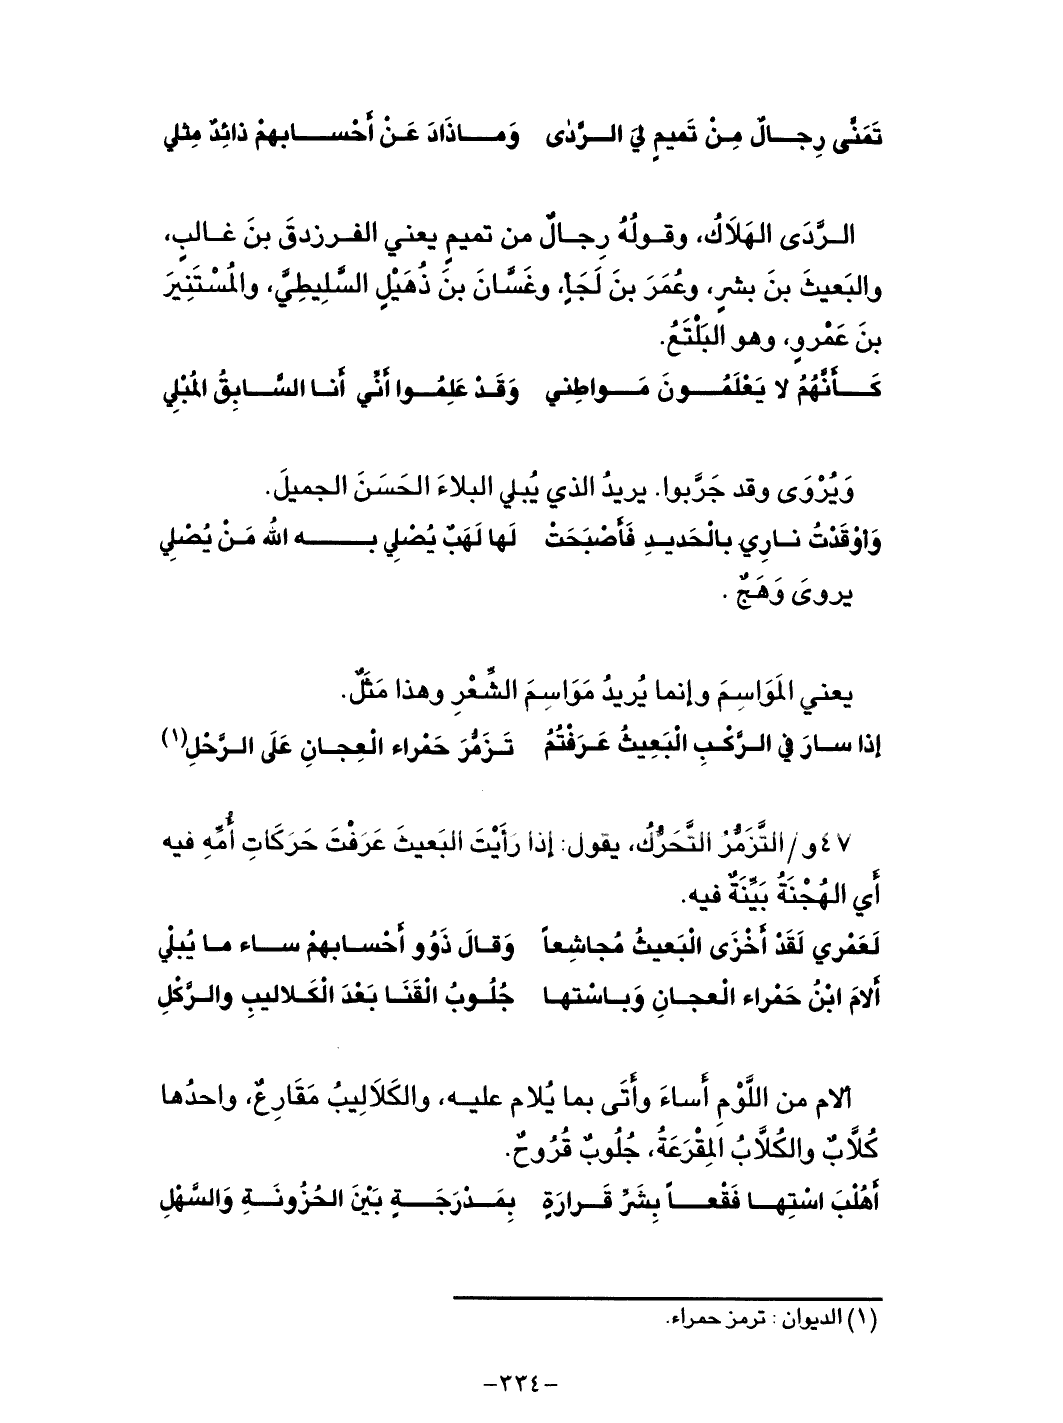 تَمَنَّى رِجـــالٌ مِـنْ تَميمٍ لِيَ الـــرَّدَى    وَمـــاذَادَ عَـنْ أَحْســـابِهمْ ذائِدٌ مِثلِي
الـرَّدَى الهَلَاكُ، وقـولُهُ رِجـالٌ من تميمٍ يعني الفـرزدقَ بنَ غـالبٍ،
والبَعيثَ بنَ بشرٍ، وعُمَرَ بنَ لَجَأٍ، وغَسَّانَ بنَ ذُهَيْلٍ السَّلِيطِيَّ، والمُسْتَنِيرَ
بنَ عَمْرٍو، وهو البَلْتَعُ.
كَـــأَنَّهُمُ لا يَعْلَمُـــونَ مَـــواطِني    وَقَـدْ عَلِمُـوا أَنِّي أَنـا السَّـابِقُ المُبْلِي
وَيُرْوَى وقد جَرَّبوا. يريدُ الذي يُبلي البلاءَ الحَسَنَ الجميلَ.
وَاوْقَدْتُ نـارِي بالْحَديـدِ فَأَصْبَحَتْ    لَها لَهَبٌ يُصْلِي بـــــه اللهُ مَـنْ يُصْلِي
يروىَ وَهَجٌ .
يعني المَوَاسِمَ وإنما يُريدُ مَوَاسِمَ الشِّعْرِ وهذا مَثَلٌ.
إذا سـارَ فِي الـرَّكْـبِ الْبَعِيثُ عَـرَفْتُمُ    تَـزَمُّرَ حَمْراء الْعِجـانِ عَلَى الـرَّحْلِ(١)
٤٧و/ التَّزَمُّرُ التَّحَرُّكُ، يقول: إذا رَأَيْتَ البَعيثَ عَرَفْتَ حَرَكَاتِ أُمِّهِ فيه
أَي الهُجْنَةُ بَيِّنَةٌ فيه.
لَعَمْرِي لَقَدْ أَخْزَى الْبَعيثُ مُجاشِعاً    وَقـالَ ذَوُو أَحْسـابِهمْ ســاء مـا يُبلْي
أَلامَ ابْنُ حَمْراء الْعجـانِ وَبـاسْتهـا    جُلُـوبُ الْقَنَـا بَعْدَ الْكَـلاليبِ والـرَّكْلِ
ألام من اللَّوْمِ أَساءَ وأَتَى بما يُلام عليـه، والكَلَالِيبُ مَقَارِعُ، واحدُها
كُلَّابٌ والكُلَّابُ المِقْرَعَةُ، جُلُوبٌ قُرُوحٌ.
أَهُلْبَ اسْتِهـــا فَقْعـــاً بِشَرِّ قَـــرارَةٍ    بِمَـــدْرَجَـــةٍ بَيْنَ الحُزُونَـــةِ وَالسَّهْلِ
(١) الديوان : ترمز حمراء.
-٣٣٤-